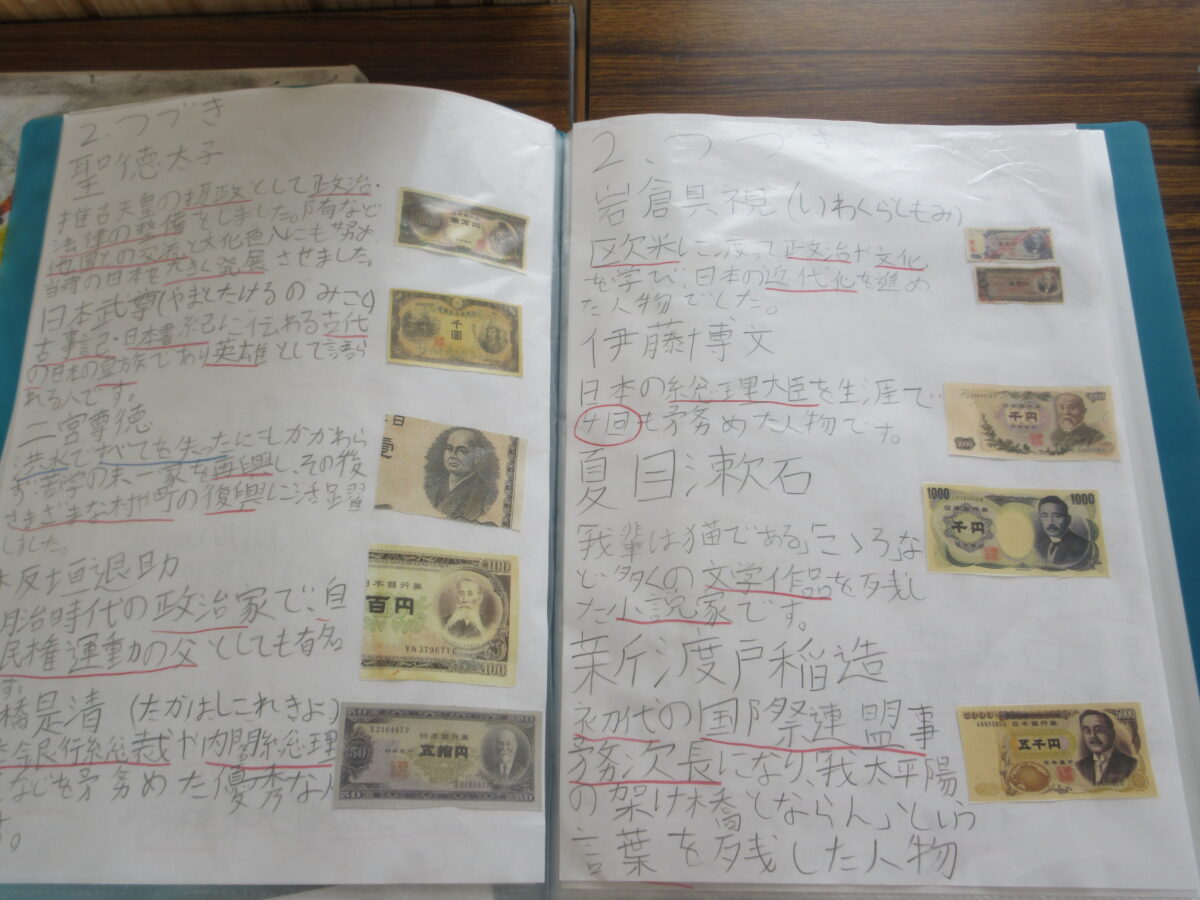 2.つづき
聖徳太子
推古天皇の摂政として政治・
法律の整備をしました。
他国との交流と文化面にも努め
当時の日本を大きく発展させました。
日本武尊(やまとたけるのみこと)
古事記・日本書紀に伝わる古代
の日本の皇族であり英雄として語ら
れる人です。
二宮尊徳
洪水ですべてを失ったにもかかわら
ず苦学の末一家を再興し、その後
さまざまな村や町の復興に活躍
しました。
板垣退助
明治時代の政治家で、自
民権運動の父としても有名
す。
橋是清(たかはしこれきよ)
銀行総裁や内閣総理
などを務めた優秀な人
す。
千圓
日
壱
100
日本銀行券
百円
YN379671C
100
50
日本銀行券
五拾円
日本銀行
50
2.つづき
岩倉具視(いわくらともみ)
区欠米に渡って正文治や文化
を学び、日本の近代化を進め
た人物でした。
伊藤博文
日本の総理大臣を生涯で
4回も務めた人物です。
夏目漱石
「我輩は猫である」「こゝろ」な
ど多くの文学作品を残し
た小説家です。
新渡戸稲造
初代の国際連盟事
務次長になり、「我太平陽
の架け橋とならん」という
言葉を残した人物
日本銀行券
千円
日本銀行
1000
1000
日本銀行券
千円
日本銀行
1000
5000
日本銀行券
五千円
日本銀行
5000